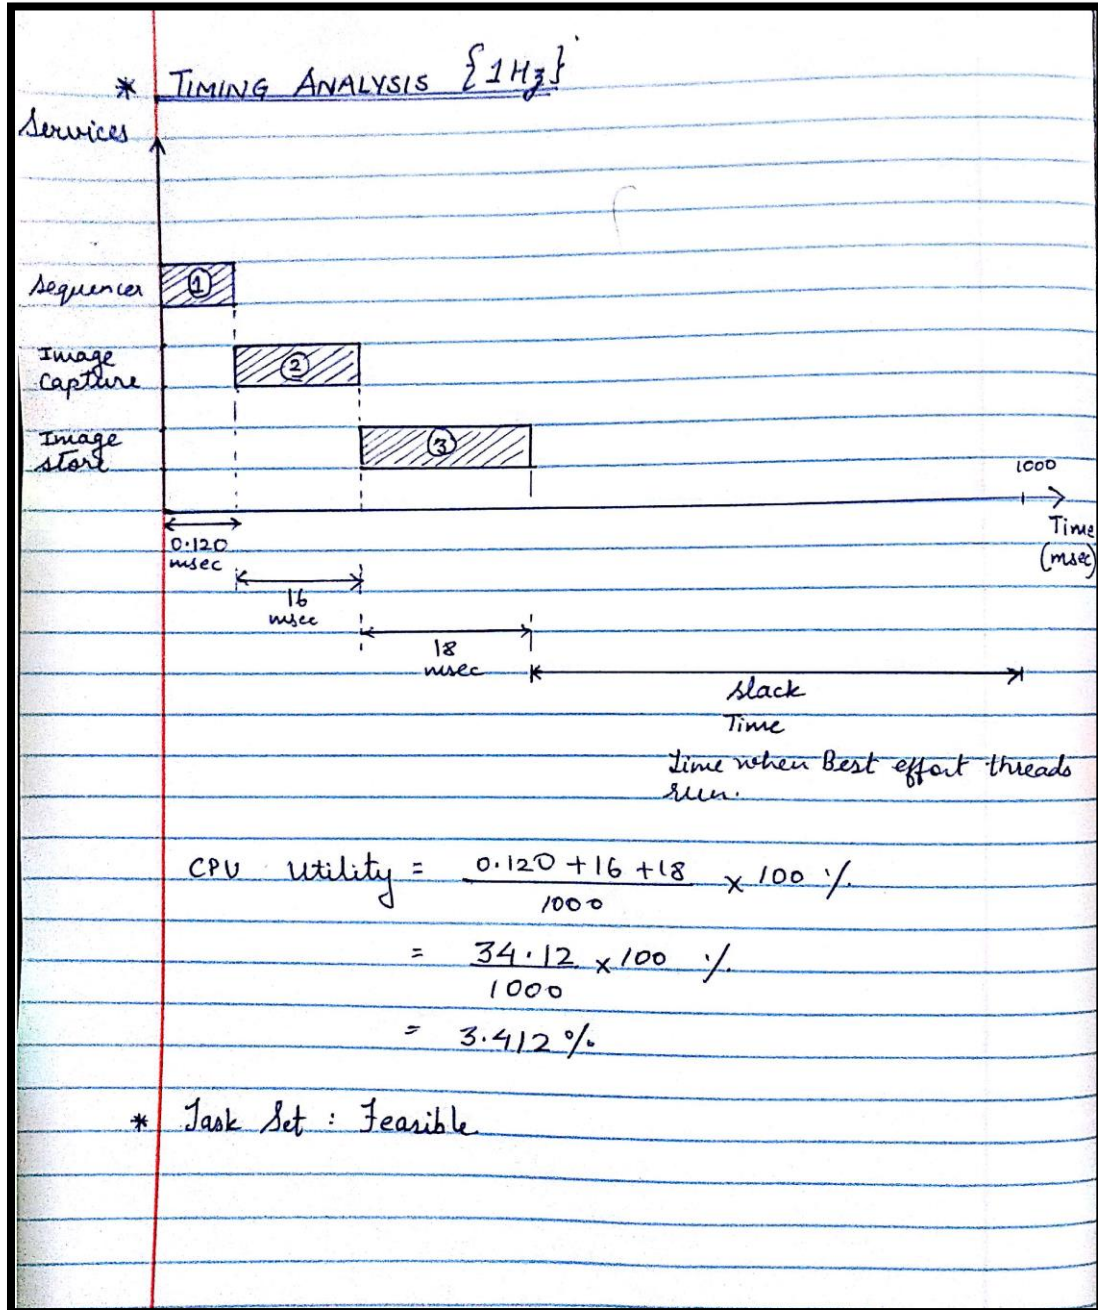 * TIMING ANALYSIS {1Hz}
Services
Sequencer
1
Image
Capture
2
Image
store
3
1000
Time
(msec)
0.120
msec
16
msec
18
msec
slack
Time
Time when Best effort threads
run.
CPU Utility = 0.120 + 16 + 18 / 1000 × 100 %
= 34.12 / 1000 × 100 %
= 3.412 %
* Task Set : Feasible